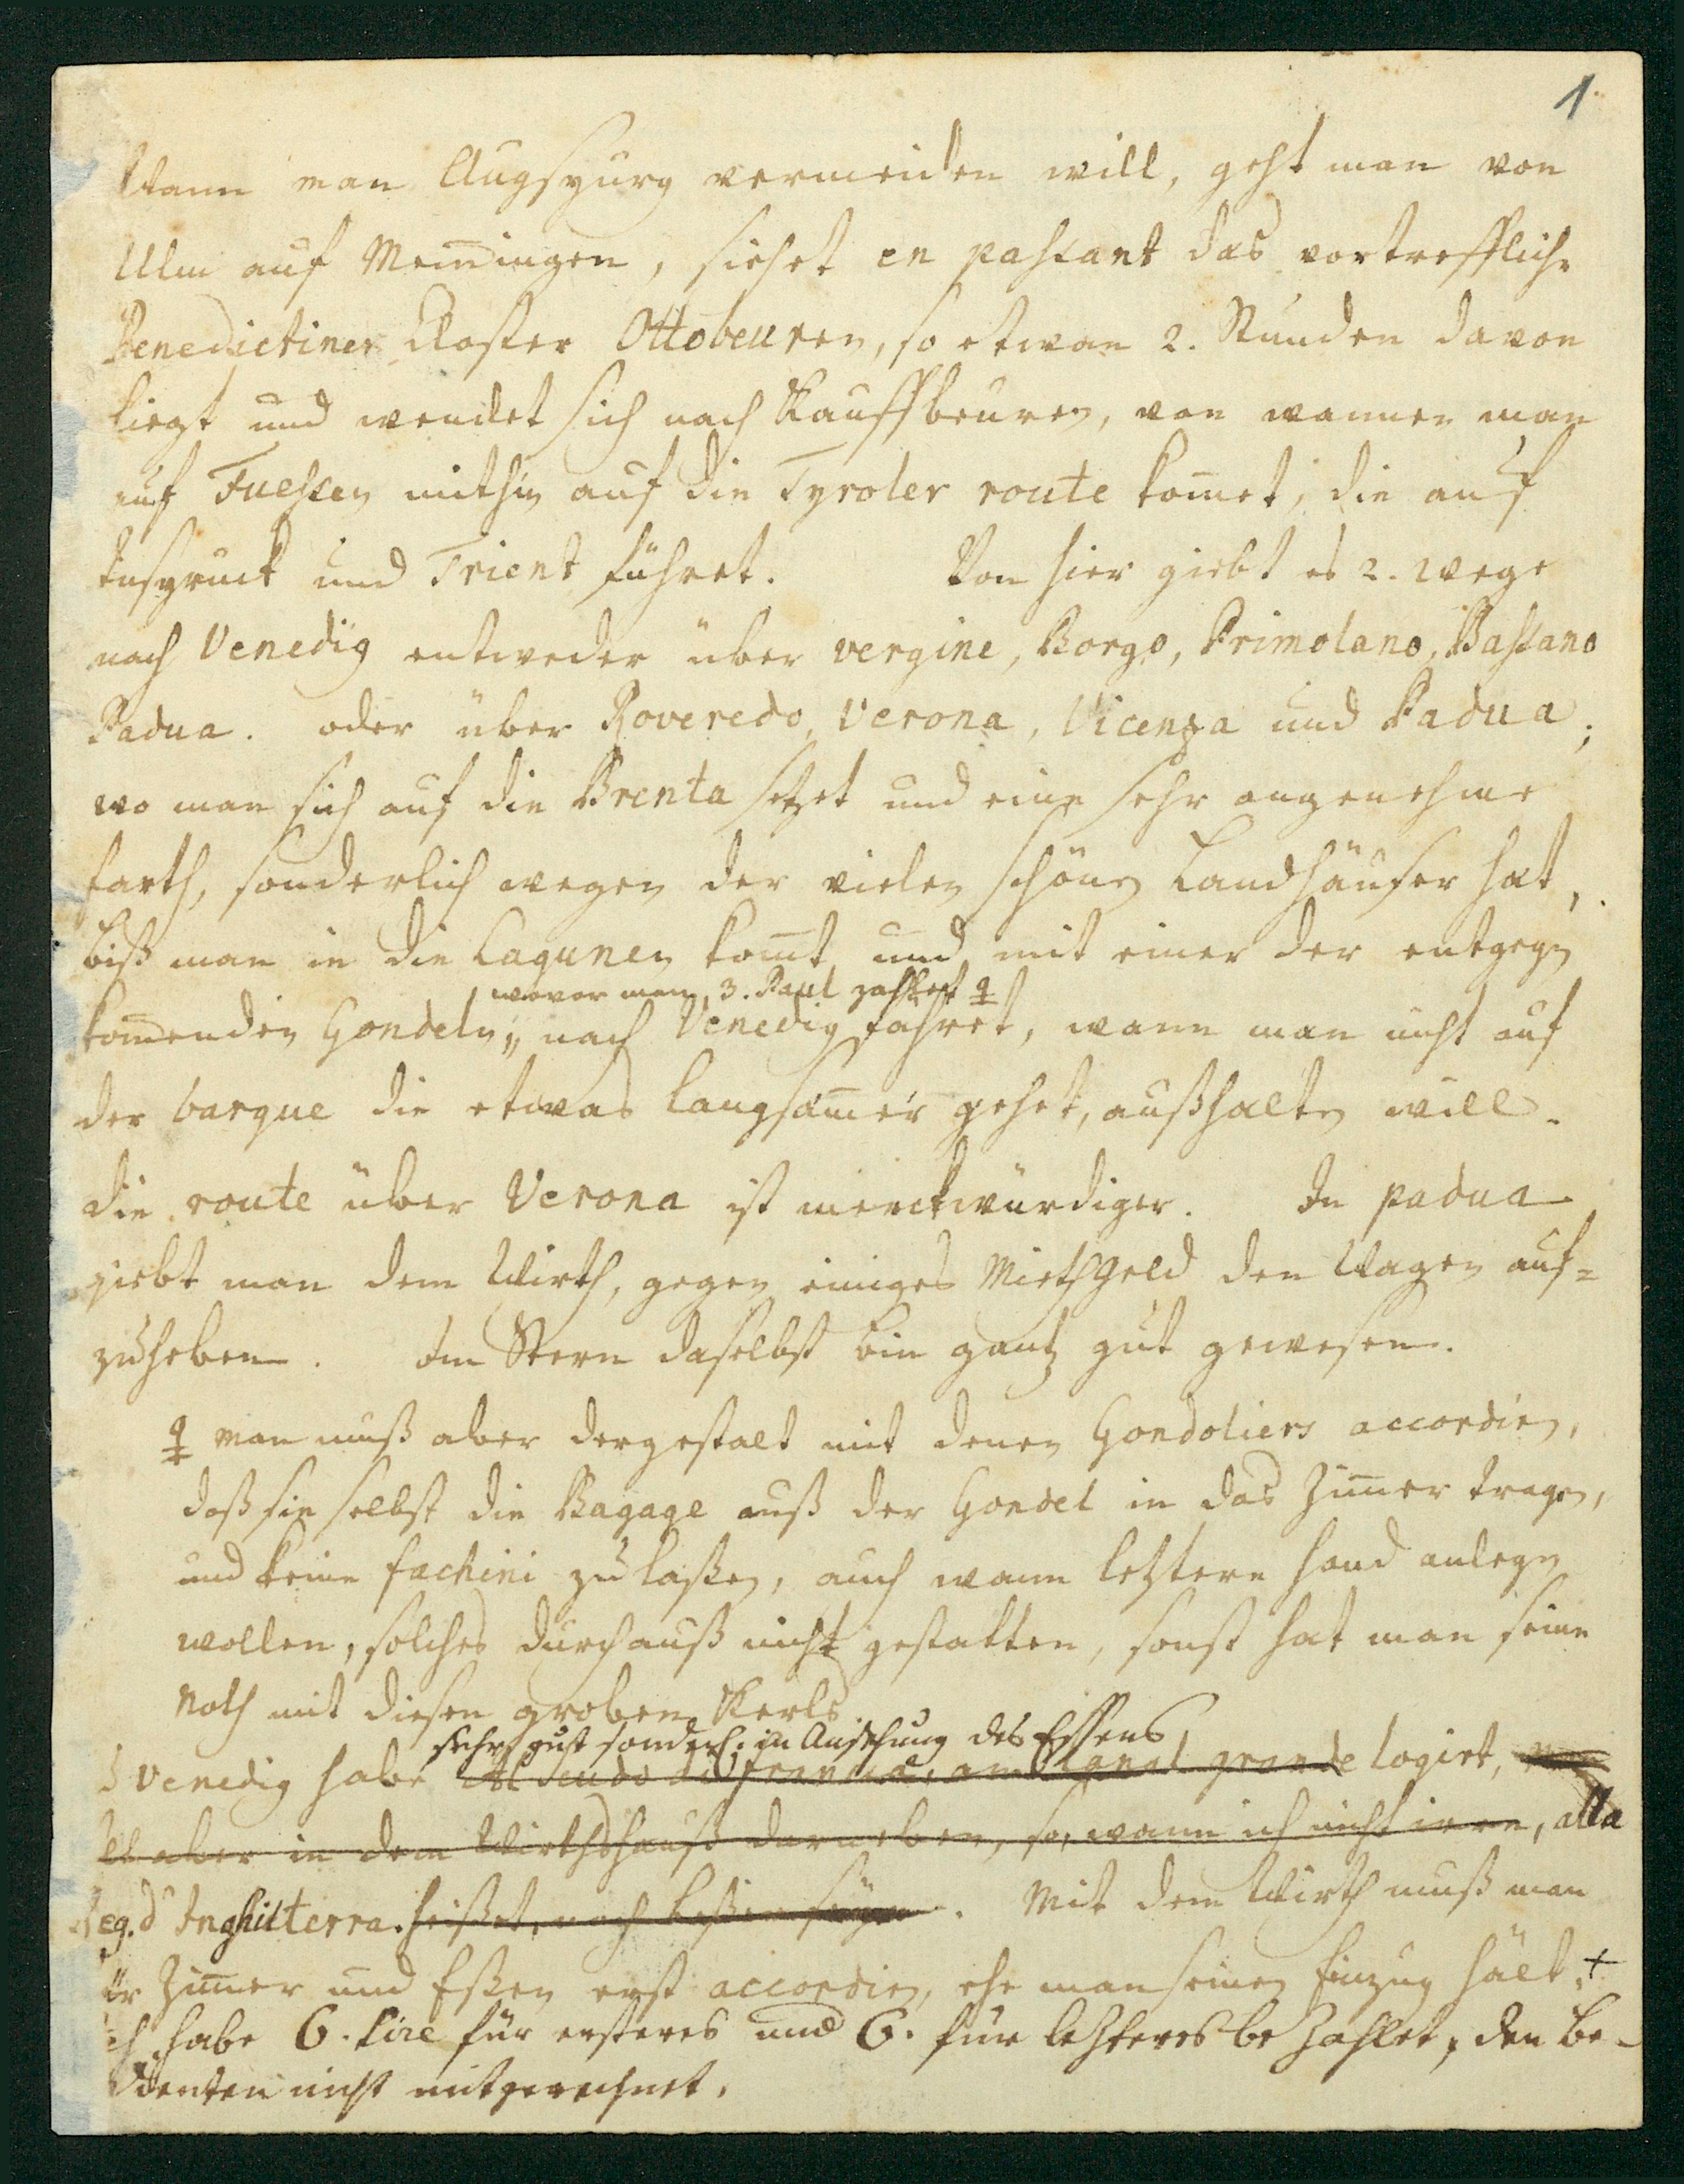 1
Wann man Augspurg vermeiden will, geht man von
Ulm auf Mem̄ingen, siehet en passant das vortreffliche
Benedictiner Closter Ottobeuren, so etwan 2. Stunden davon
liegt und wendet sich nach Kauffbeuren, von wannen man
auf Fuessen mithin auf die Tyroler route kom̄et, die auf
Inspruck und Trient führet. Von hier giebt es 2. Wege
nach Venedig entweder über Vergine, Borgo, Primolano, Bassano
Padua. oder über Roveredo, Verona, Vicenza und Padua;
wo man sich auf die Brenta setzet und eine sehr angenehme
farth, sonderlich wegen der vielen schönen Landhäuser hat,
biß man in die Lagunen kom̄t und mit einer der entgegen
wovor man 3. Paul zahlet ♀
kom̄enden Gondeln,, nach Venedig fahret, wann man nicht auf
der barque die etwas langsam̄er gehet, außhalten will.
die route über Verona ist merckwürdiger. In Padua
giebt man dem Wirth, gegen einiges Miethgeld den Wagen auf=
zuheben. Im Stern daselbst bin gantz gut gewesen.
♀ Man muß aber dergestalt mit denen Gondoliers accordien,
daß sie selbst die Bagage auß der Gondel in das Zim̄er tragen,
und keine fachini zulaßen, auch wann letztere hand anlegen
wollen, solches durchauß nicht gestatten, sonst hat man seine
Noth mit diesen groben Kerls
sehr gut sonderl: in Ansehung des Essens
Venedig habe Al Scudo di francia, am Canal grande logirt,
aber in dem Wirthshauß darneben, so, wann ich nicht irre, alla
Reg. d'Inghilterra heißet, noch beßer. Mit dem Wirth muß man
Zim̄er und Eßen erst accordien, ehe man seinen Einzug hält, +
habe 6. Lire für ersteres und 6. für letzteres bezahlet, den Be-
dienten nicht mitgerechnet.